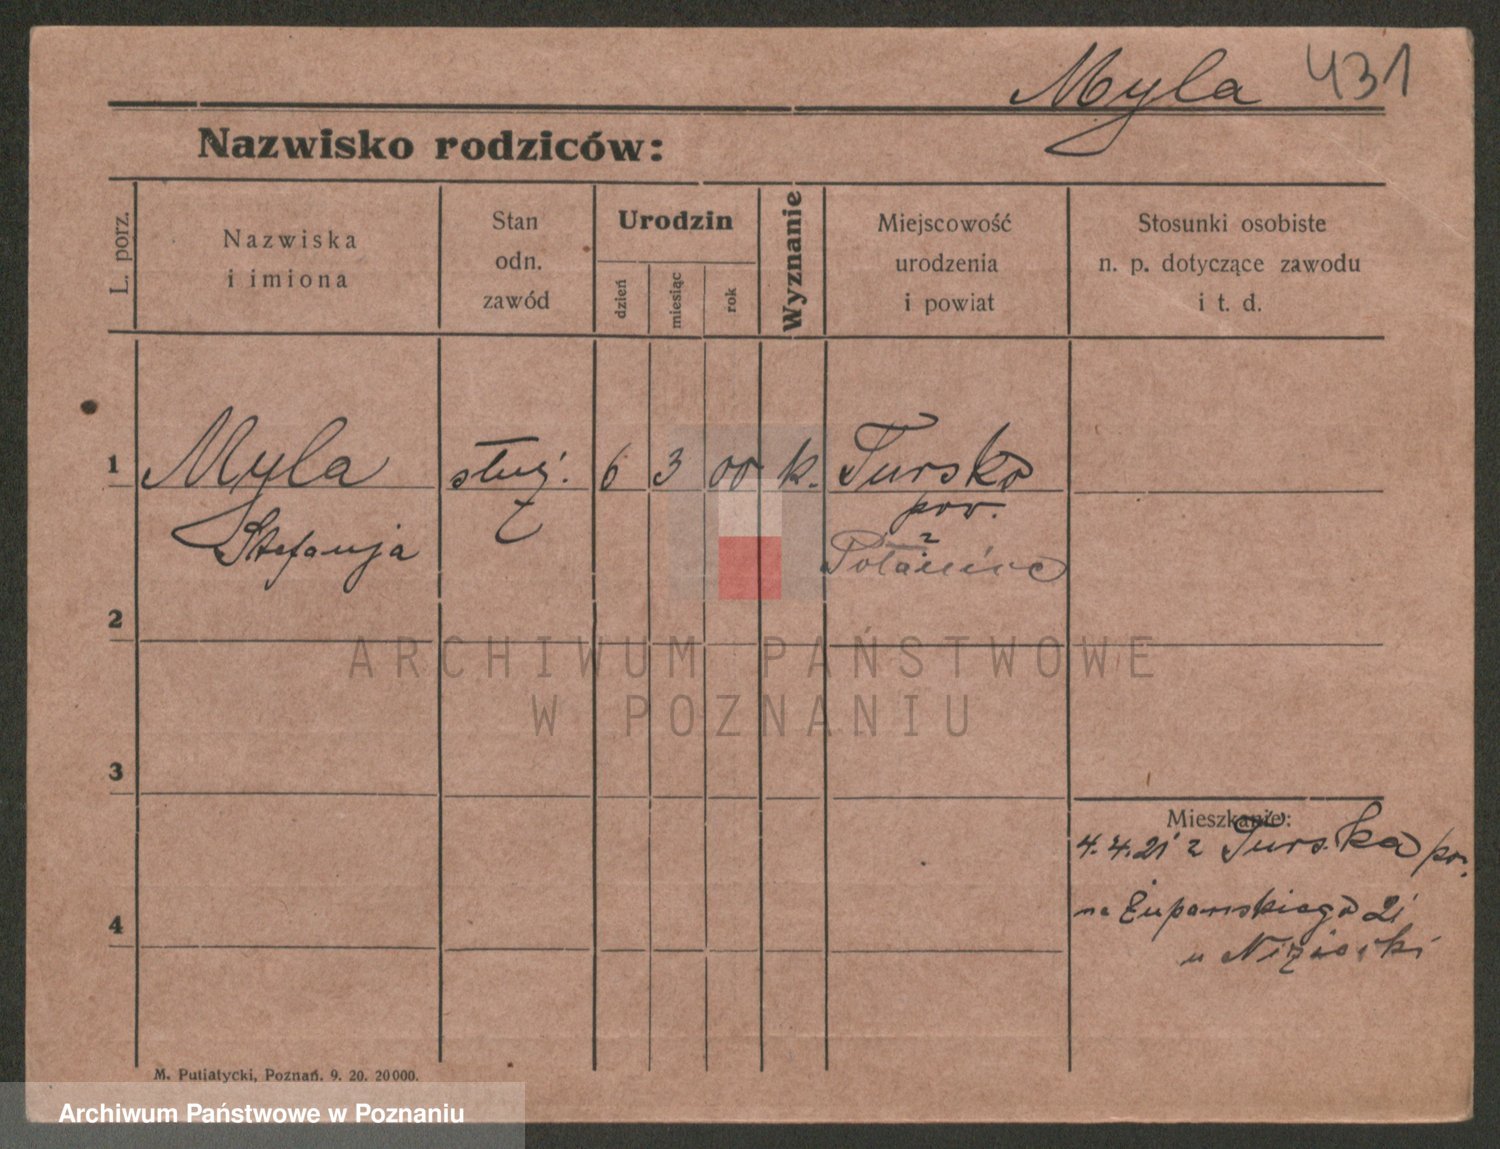 Myla 431
Nazwisko rodziców:
L. porz.
Nazwiska
i imiona
Stan
odn.
zawód
Urodzin
dzień
miesiąc
rok
Wyznanie
Miejscowość
urodzenia
i powiat
Stosunki osobiste
n. p. dotyczące zawodu
i t. d.
1 Myla służ. 6 3 00 k. Tursko
Stefanja
pow.
2
3
4
Mieszkanie:
4.4.21 z Turska
na Żupańskiego 21
u
M. Putiatycki, Poznań. 9. 20. 20000.
ARCHIWUM PAŃSTWOWE
W POZNANIU
Archiwum Państwowe w Poznaniu